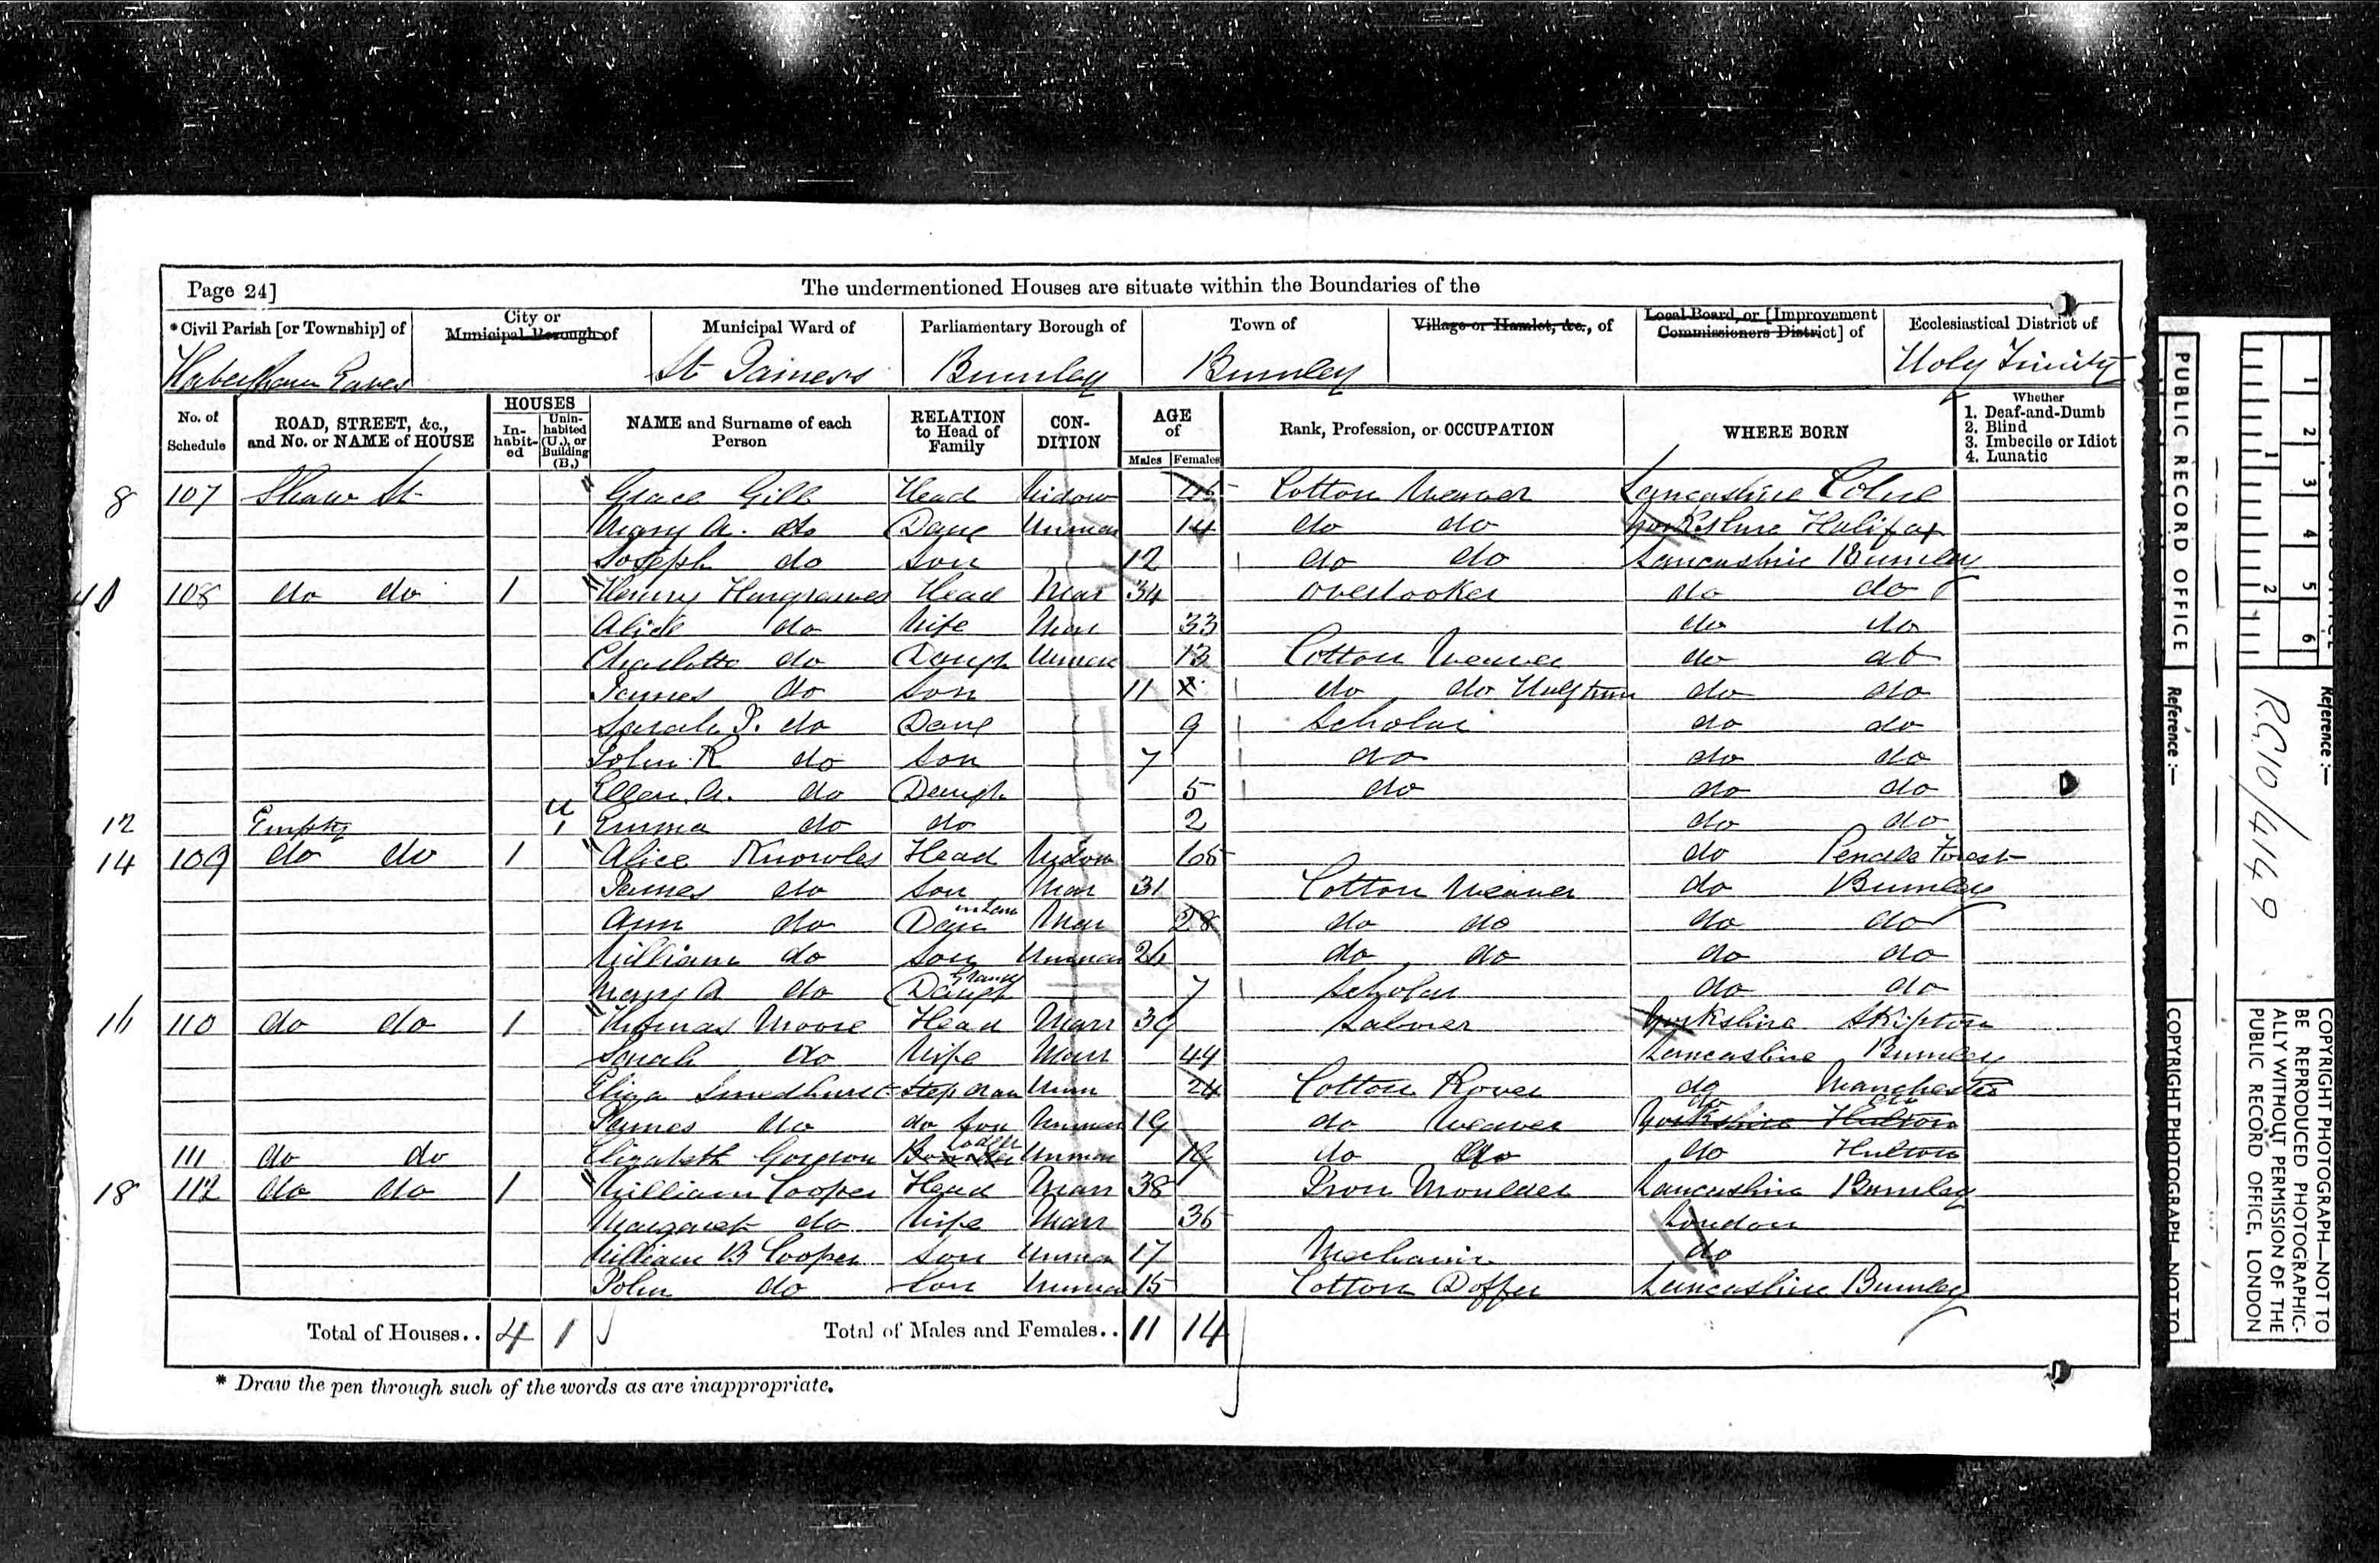 Page 24]
The undermentioned Houses are situate within the Boundaries of the
*Civil Parish [or Township] of
City or Municipal Borough of
Municipal Ward of
Parliamentary Borough of
Town of
Village or Hamlet, &c., of
Local Board, or [Improvement Commissioners District] of
Ecclesiastical District of
Habergham Eaves St Jameses Burnley Burnley Holy Trinity
No. of Schedule
ROAD, STREET, &c., and No. or NAME of HOUSE
HOUSES
In-habit-ed
Unin-habited (U.), or Building (B.)
NAME and Surname of each Person
RELATION to Head of Family
CON-DITION
AGE of
Males Females
Rank, Profession, or OCCUPATION
WHERE BORN
Whether
1. Deaf-and-Dumb
2. Blind
3. Imbecile or Idiot
4. Lunatic
8 107 Shaw St Grace Gill Head Widow 45 Cotton Weaver Lancashire Colne
Mary A. do Daug Unmar 14 do do Yorkshire Halifax
Joseph do Son 12 do do Lancashire Burnley
10 108 do do 1 Henry Hargreaves Head Mar 34 Overlooker do do
Alice do Wife Mar 33 do do
Charlotte do Daugh Unmar 13 Cotton Weaver do do
James do Son 11 do do Half time do do
Sarah J. do Daug 9 Scholar do do
John R do Son 7 do do do
Ellen A. do Daugh 5 do do do
12 Empty U 1 Emma do do 2 do do
14 109 do do 1 Alice Knowles Head Widow 65 do Pendle Forest
James do Son Mar 31 Cotton Weaver do Burnley
Ann do Daug in law Mar 28 do do do do
William do Son Unmar 24 do do do do
Mary A do Grand Daugh 7 Scholar do do
16 110 do do 1 Thomas Moore Head Marr 39 Labourer Yorkshire Skipton
Sarah do Wife Marr 44 Lancashire Burnley
Eliza Smedhurst Step Unm 24 Cotton Rover do Manchester
James do do Son Unmar 19 do Weaver do do Yorkshire
111 do do Elizabeth Lodger Unmar 19 do do do
18 112 do do 1 William Cooper Head Marr 38 Iron Moulder Lancashire Burnley
Margaret do Wife Marr 36 London
William B Cooper Son Unmar 17 Mechanic do
John do Son Unmar 15 Cotton Doffer Lancashire Burnley
Total of Houses.. 4 1
Total of Males and Females.. 11 14
* Draw the pen through such of the words as are inappropriate.
PUBLIC RECORD OFFICE
Reference :—
COPYRIGHT PHOTOGRAPH—NOT TO
1 2 3 4 5 6
1 2
Reference :—
R.G.10/4149
COPYRIGHT PHOTOGRAPH—NOT TO
BE REPRODUCED PHOTOGRAPHIC-
ALLY WITHOUT PERMISSION OF THE
PUBLIC RECORD OFFICE, LONDON